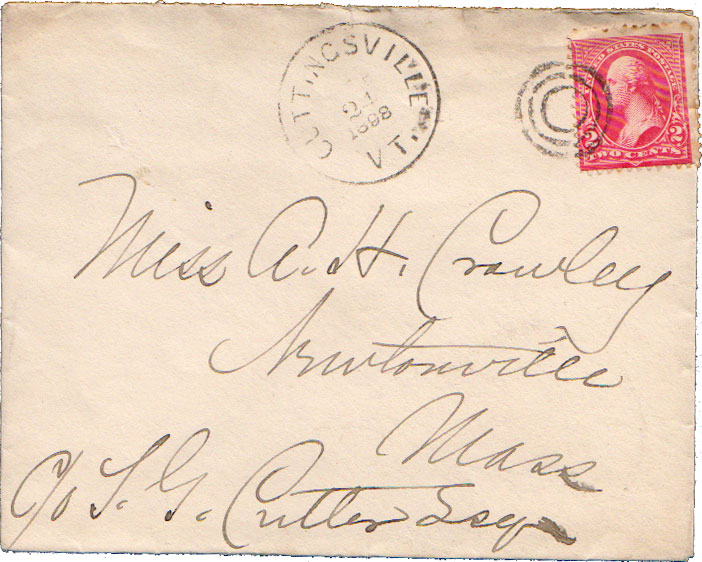 CUTTINGSVILLE
21
1898
VT.
UNITED STATES POSTAGE
2 2
TWO CENTS
Miss A. H. Crowley
Newtonville
Mass
c/o S. G. Cutler Esq